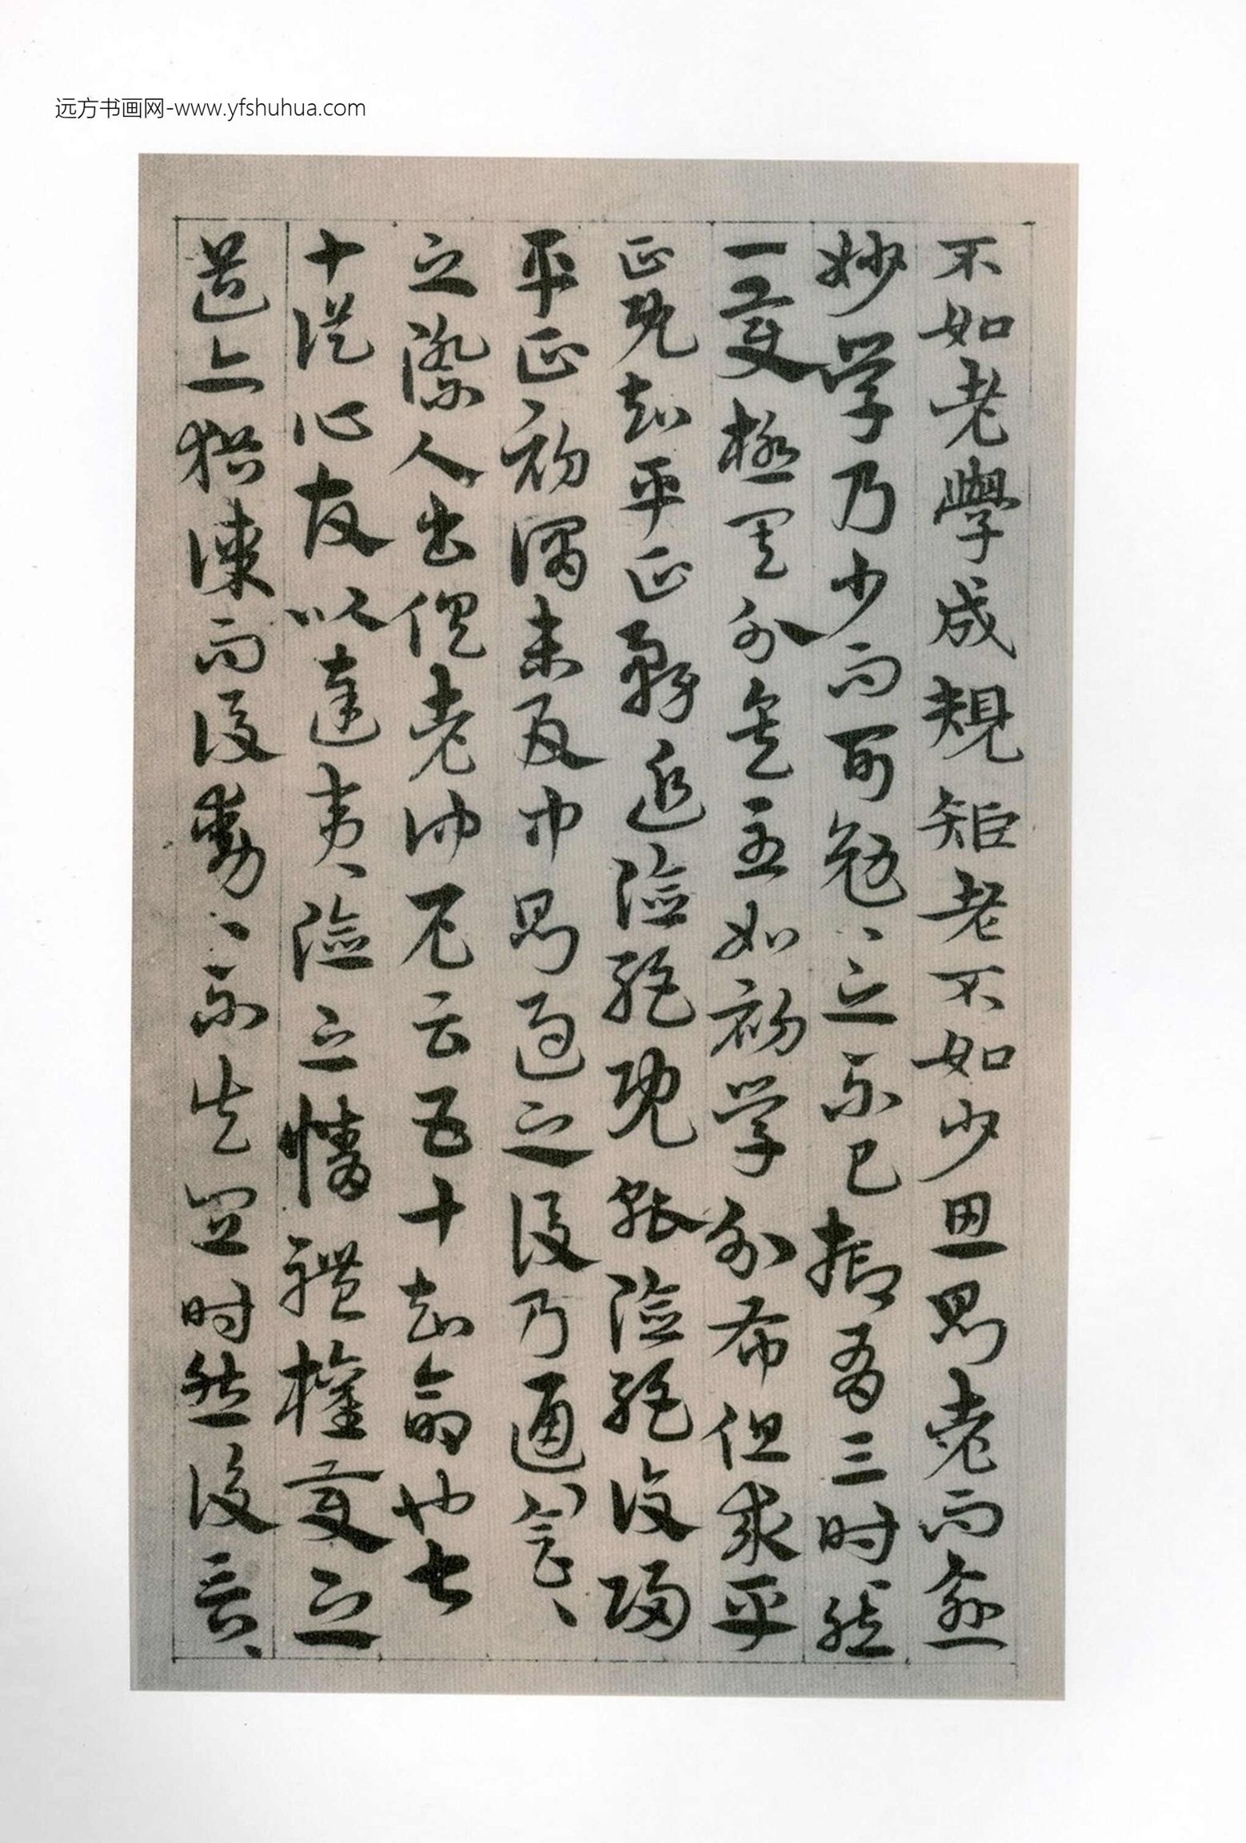 远方书画网-www.yfshuhua.com
不如老學成規矩老不如少思則老而愈
妙学乃少而可勉、之不已抑有三时然
一變極其分矣至如初学分布但求平
正既知平正務追險絕既能險絕復歸
平正初謂未及中則過之後乃通會、
之際人書俱老仲尼云五十知命也七
十從心故以達夷、險之情體權變之
道亦猶謀而後動、不失宜时然後言、